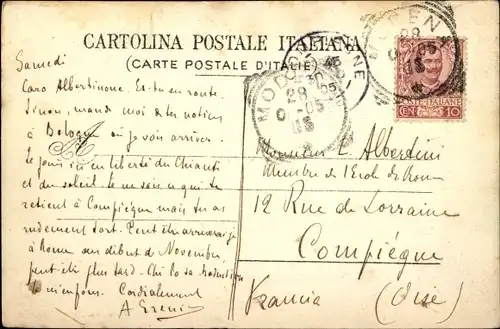 CARTOLINA POSTALE ITALIANA
(CARTE POSTALE D'ITALIE)
Samedi
Caro Albertinone. Es-tu en route.
Sinon, mande moi de tes notices
à Bologne où je vais arriver.
Je jouis en liberté du Chianti
et du soleil. Je ne sais qui te
retient à Compiègne mais tu as
rudement tort. Peut être arriverai je
à Rome au début de Novembre,
peut être plus tard. Chi lo sa
Cordialement
MODENA
28
05
POSTE ITALIANE
CENT. 10
Monsieur E. Albertini
Membre de l'Ecole de Rome
12 Rue de Lorraine
Compiègne
Francia (Oise)